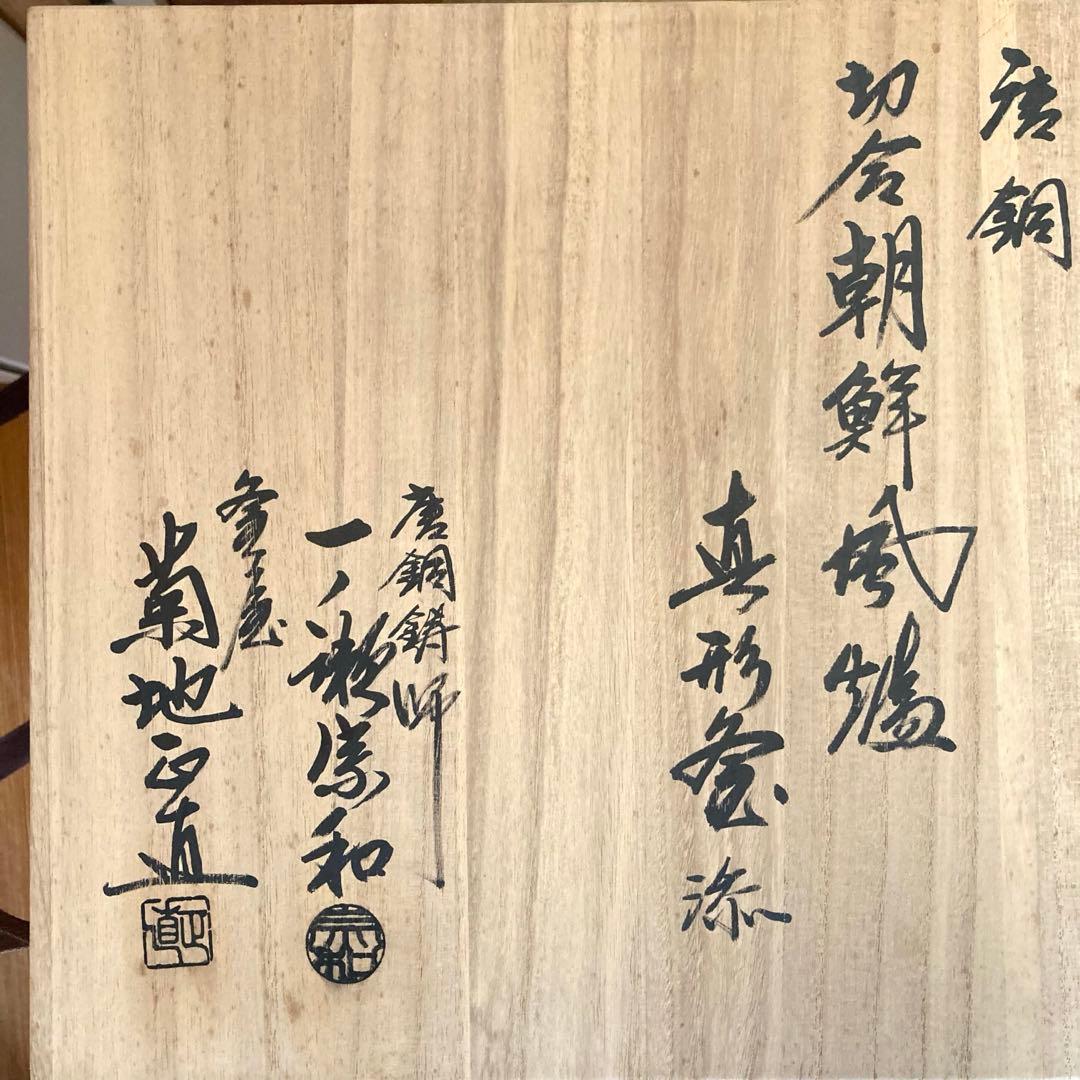 唐銅
切合朝鮮風爐
真形釜添
唐銅鋳師
一ノ瀬宗和
釜屋
菊地正直
宗和
正直